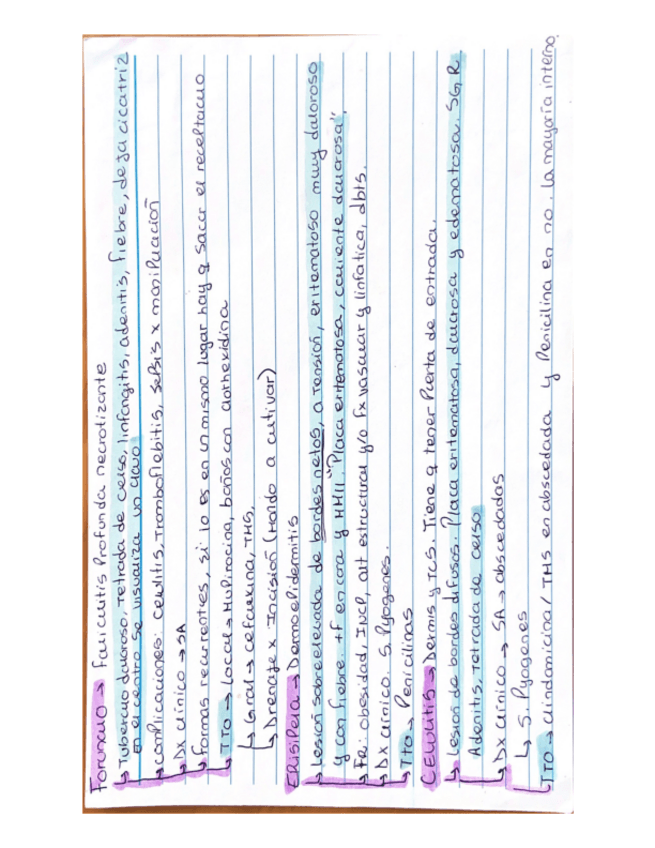 Forúnculo → Foliculitis Profunda necrotizante
↳ Tubérculo doloroso, Tetrada de celso, linfangitis, adenitis, fiebre, deja cicatriz
en el centro se visualiza un clavo.
↳ complicaciones: celulitis, Tromboflebitis, sepsis x manipulación
↳ Dx clínico → SA
↳ formas recurrentes, si lo es en un mismo lugar hay q sacar el receptaculo
↳ TTO → Local → Mupirocina, baños con clorhexidina
↳ Gral → cefalexina, TMS,
↳ Drenaje x Incisión (Mando a cultivar)
ERisipela → Dermoepidermitis
↳ Lesión sobreelevada de bordes netos, a Tensión, eritematoso muy doloroso
y con fiebre. +f en cara y MMII. "Placa eritematosa, caliente dolorosa",
↳ FR: obesidad, INCP, alt estructural y/o Fx vascular y linfatica, dbts.
↳ Dx clínico. S. Pyogenes.
↳ Tto → Penicilinas
CELULITIS → Dermis y TCS. Tiene q tener Puerta de entrada.
↳ Lesión de bordes difusos. Placa eritematosa, dolorosa y edematosa. SG, R
Adenitis, Tetrada de celso
↳ Dx clínico → SA → abscedadas
↳ S. Pyogenes
↳ TTO → clindamicina / TMS en abscedada y Penicilina en no. la mayoría interno.